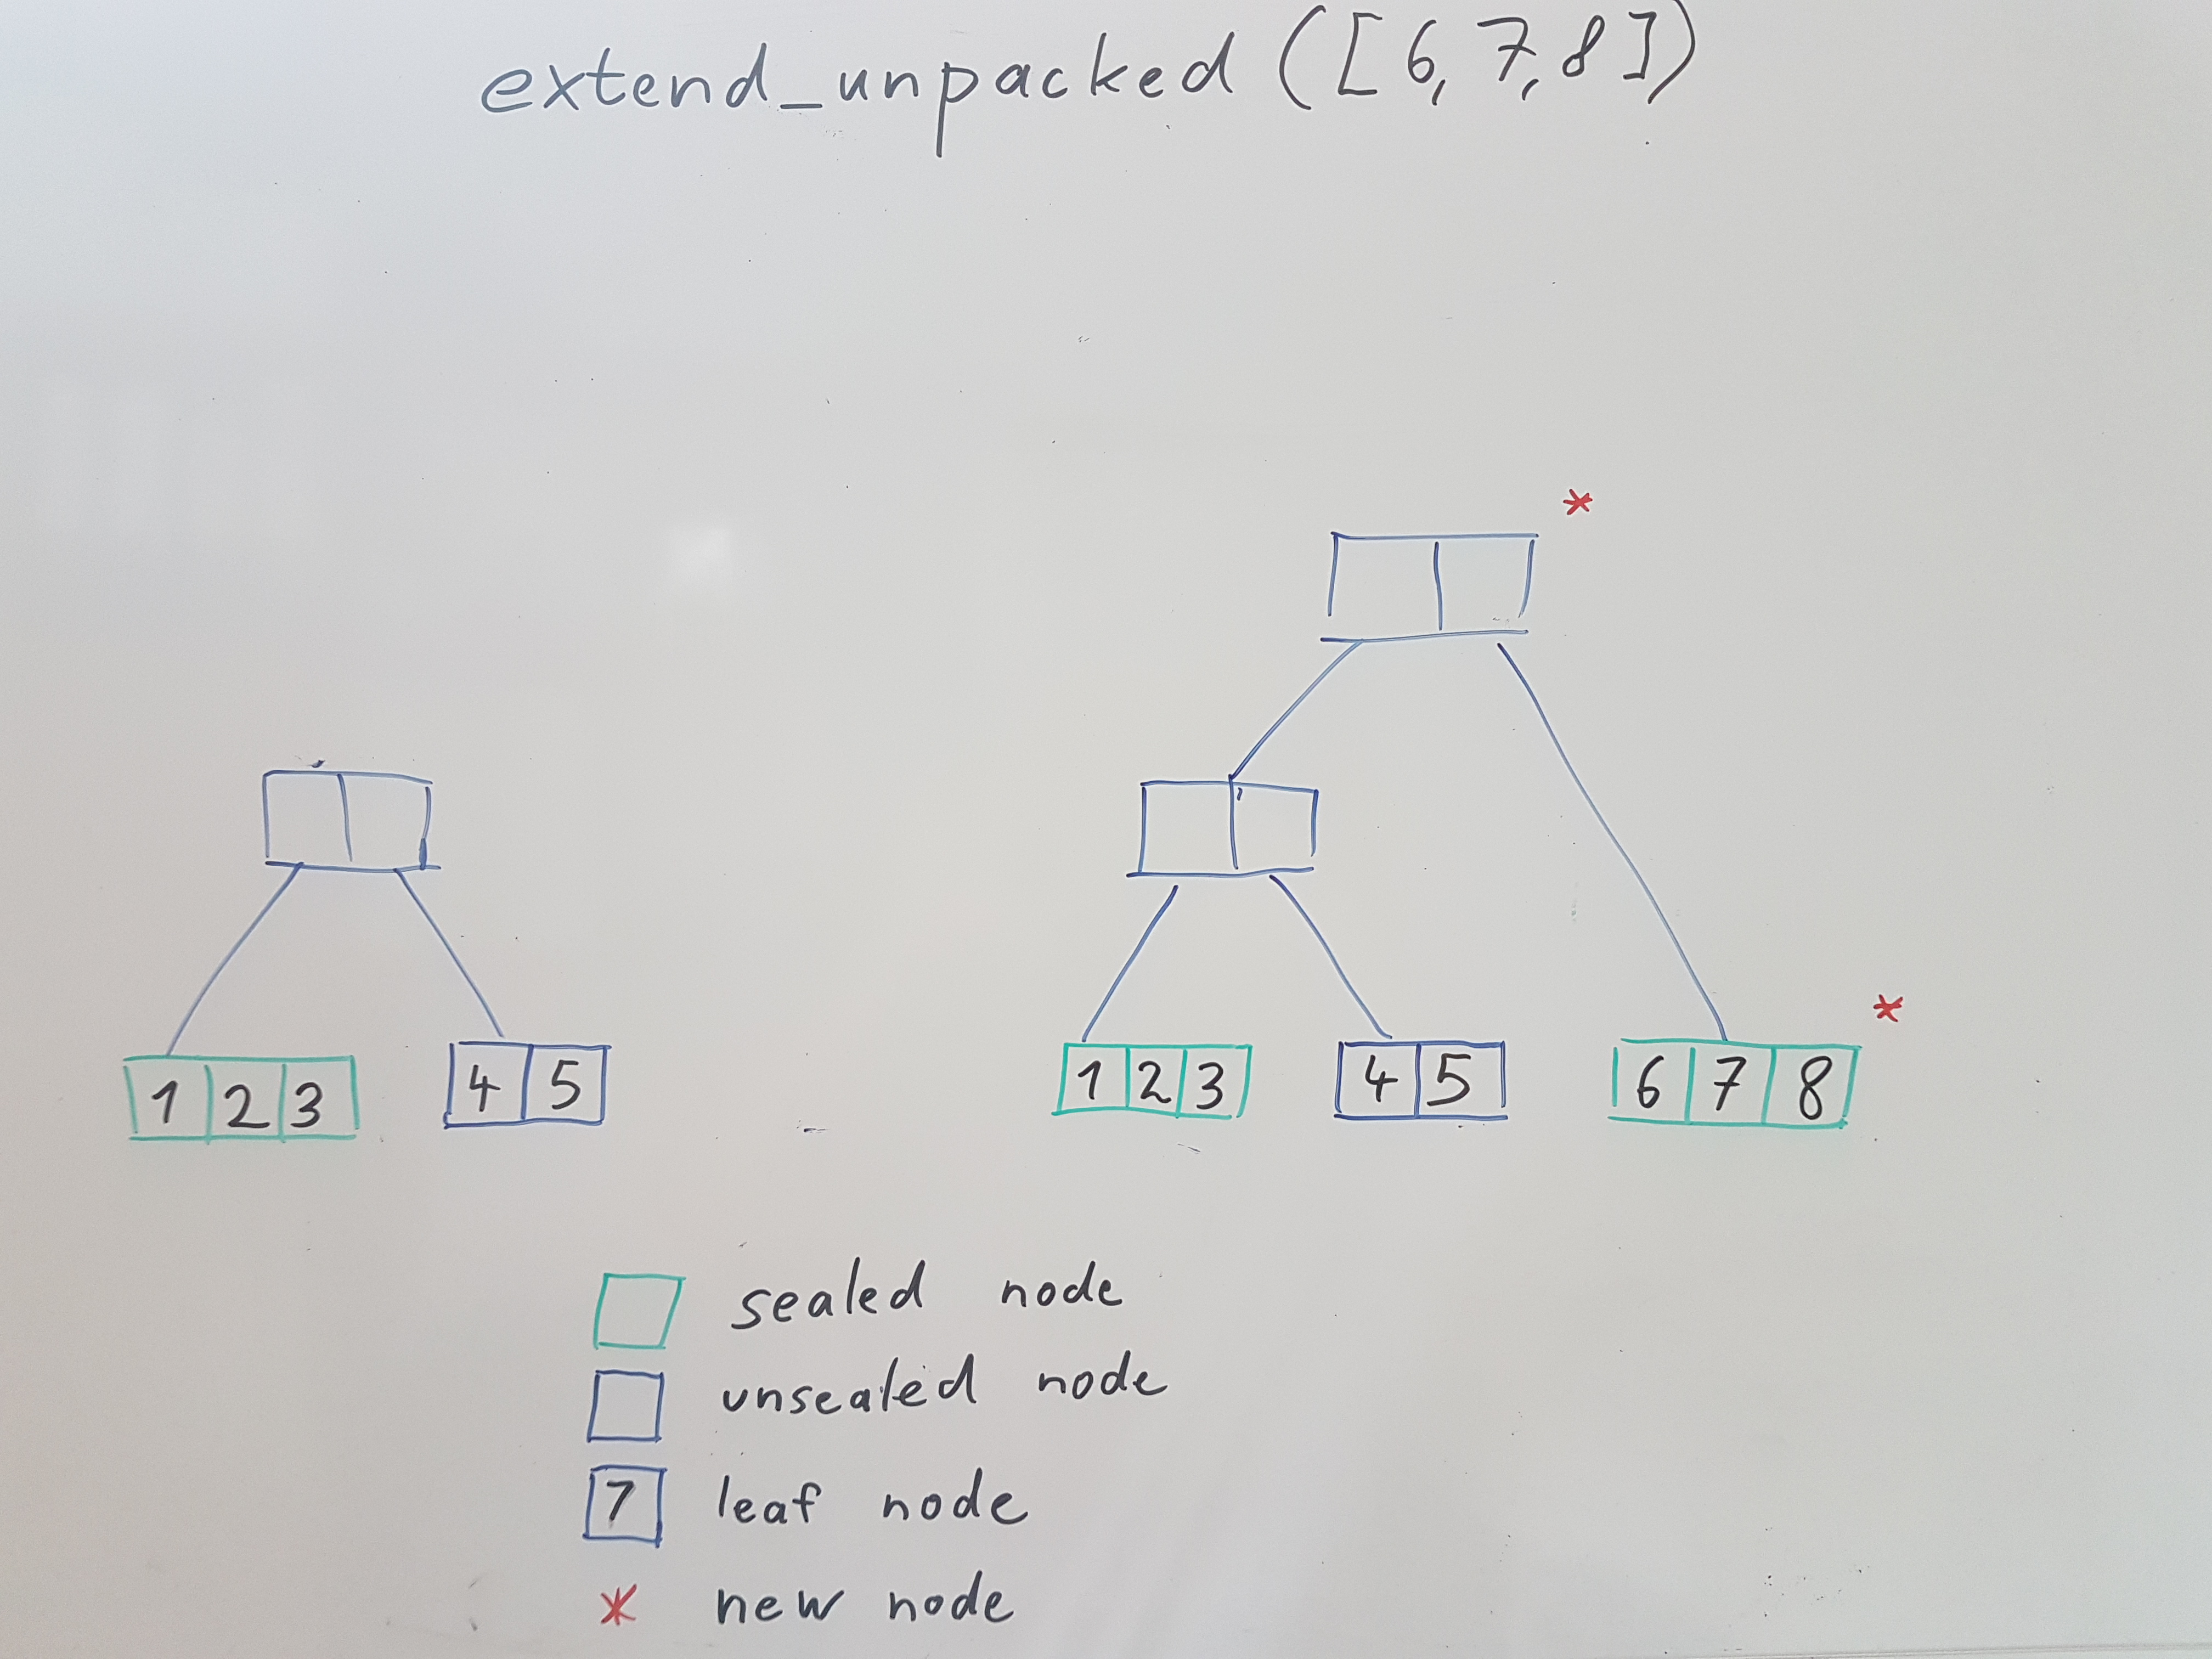 extend_unpacked ([6,7,8])
1 2 3
4 5
1 2 3
4 5
6 7 8
sealed node
unsealed node
7 leaf node
* new node